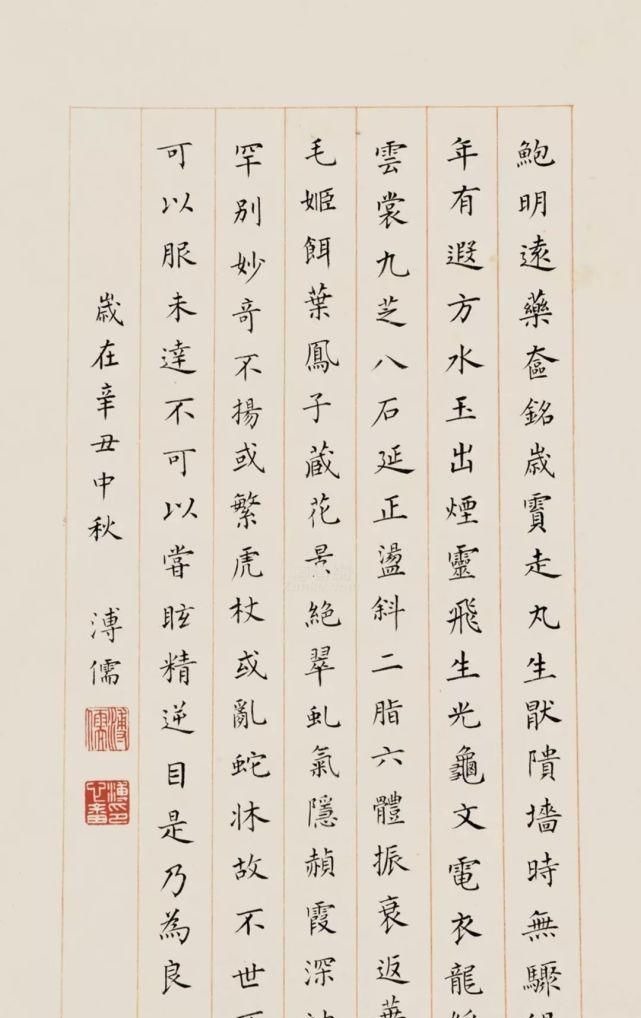 鮑明遠藥奩銘歲霣走丸生猒隤墻時無驟
年有遐方水玉出煙靈飛生光龜文電衣龍
雲裳九芝八石延正盪斜二脂六體振衰返華
毛姬餌葉鳳子蔵花景絕翠虬氣隱赬霞深
罕別妙奇不揚或繁虎杖或亂蛇牀故不世
可以服未達不可以嘗眩精逆目是乃為良
歲在辛丑中秋 溥儒
溥儒